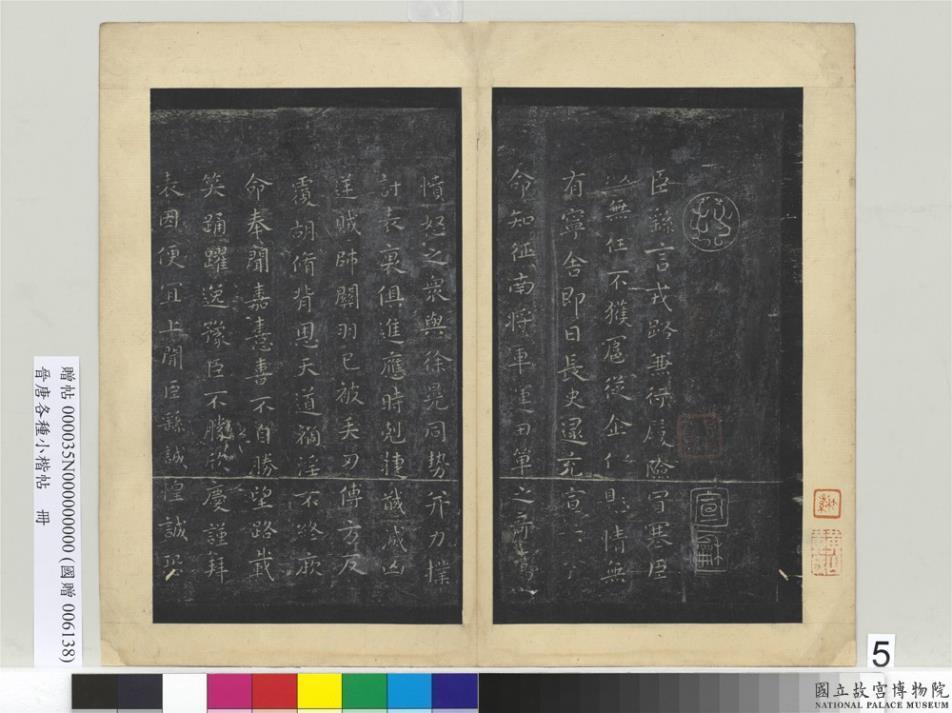 臣繇言戎路兼行履險冒寒臣
以無任不獲扈從企仁懸情無
有寧舍即日長史逮充宣示
命知征南將軍運田單之奇厲
憤怒之眾與徐晃同勢并力撲
討表裏俱進應時剋捷馘滅凶
逆賊帥關羽已被矢刃傅方反
覆胡脩背恩天道禍淫不終厥
命奉聞嘉憙喜不自勝望路載
笑踊躍逸豫臣不勝欣慶謹拜
表因便宜上聞臣繇誠惶誠恐
宣和
贈帖 000035N000000000 (國贈 006138)
晉唐各種小楷帖 冊
5
國立故宮博物院
NATIONAL PALACE MUSEUM